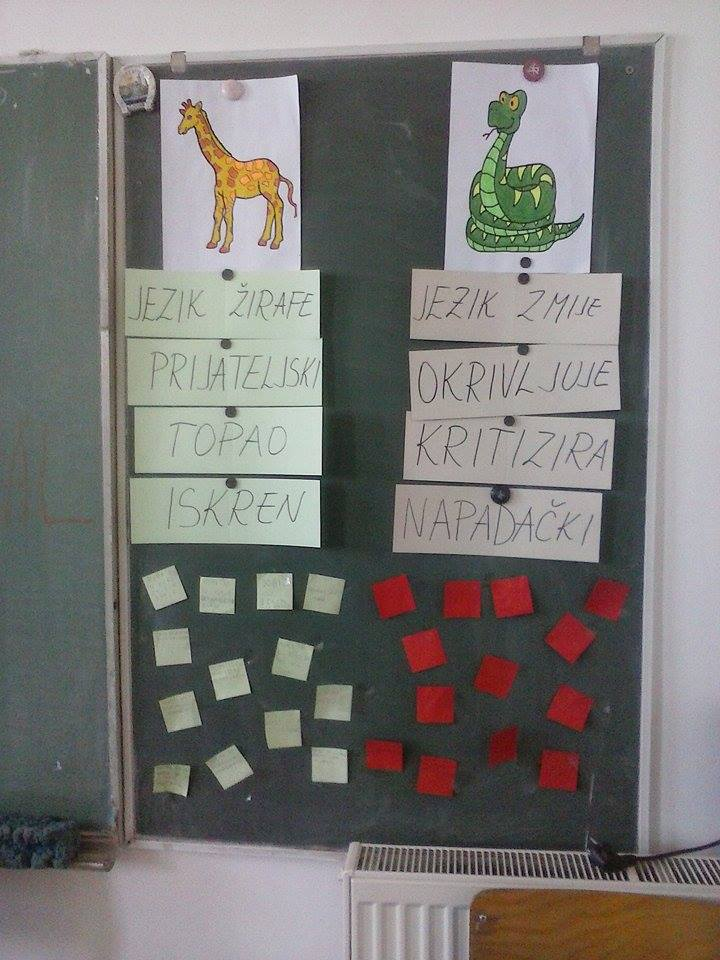 JEZIK ŽIRAFE
PRIJATELJSKI
TOPAO
ISKREN
JEZIK ZMIJE
OKRIVLJUJE
KRITIZIRA
NAPADAČKI